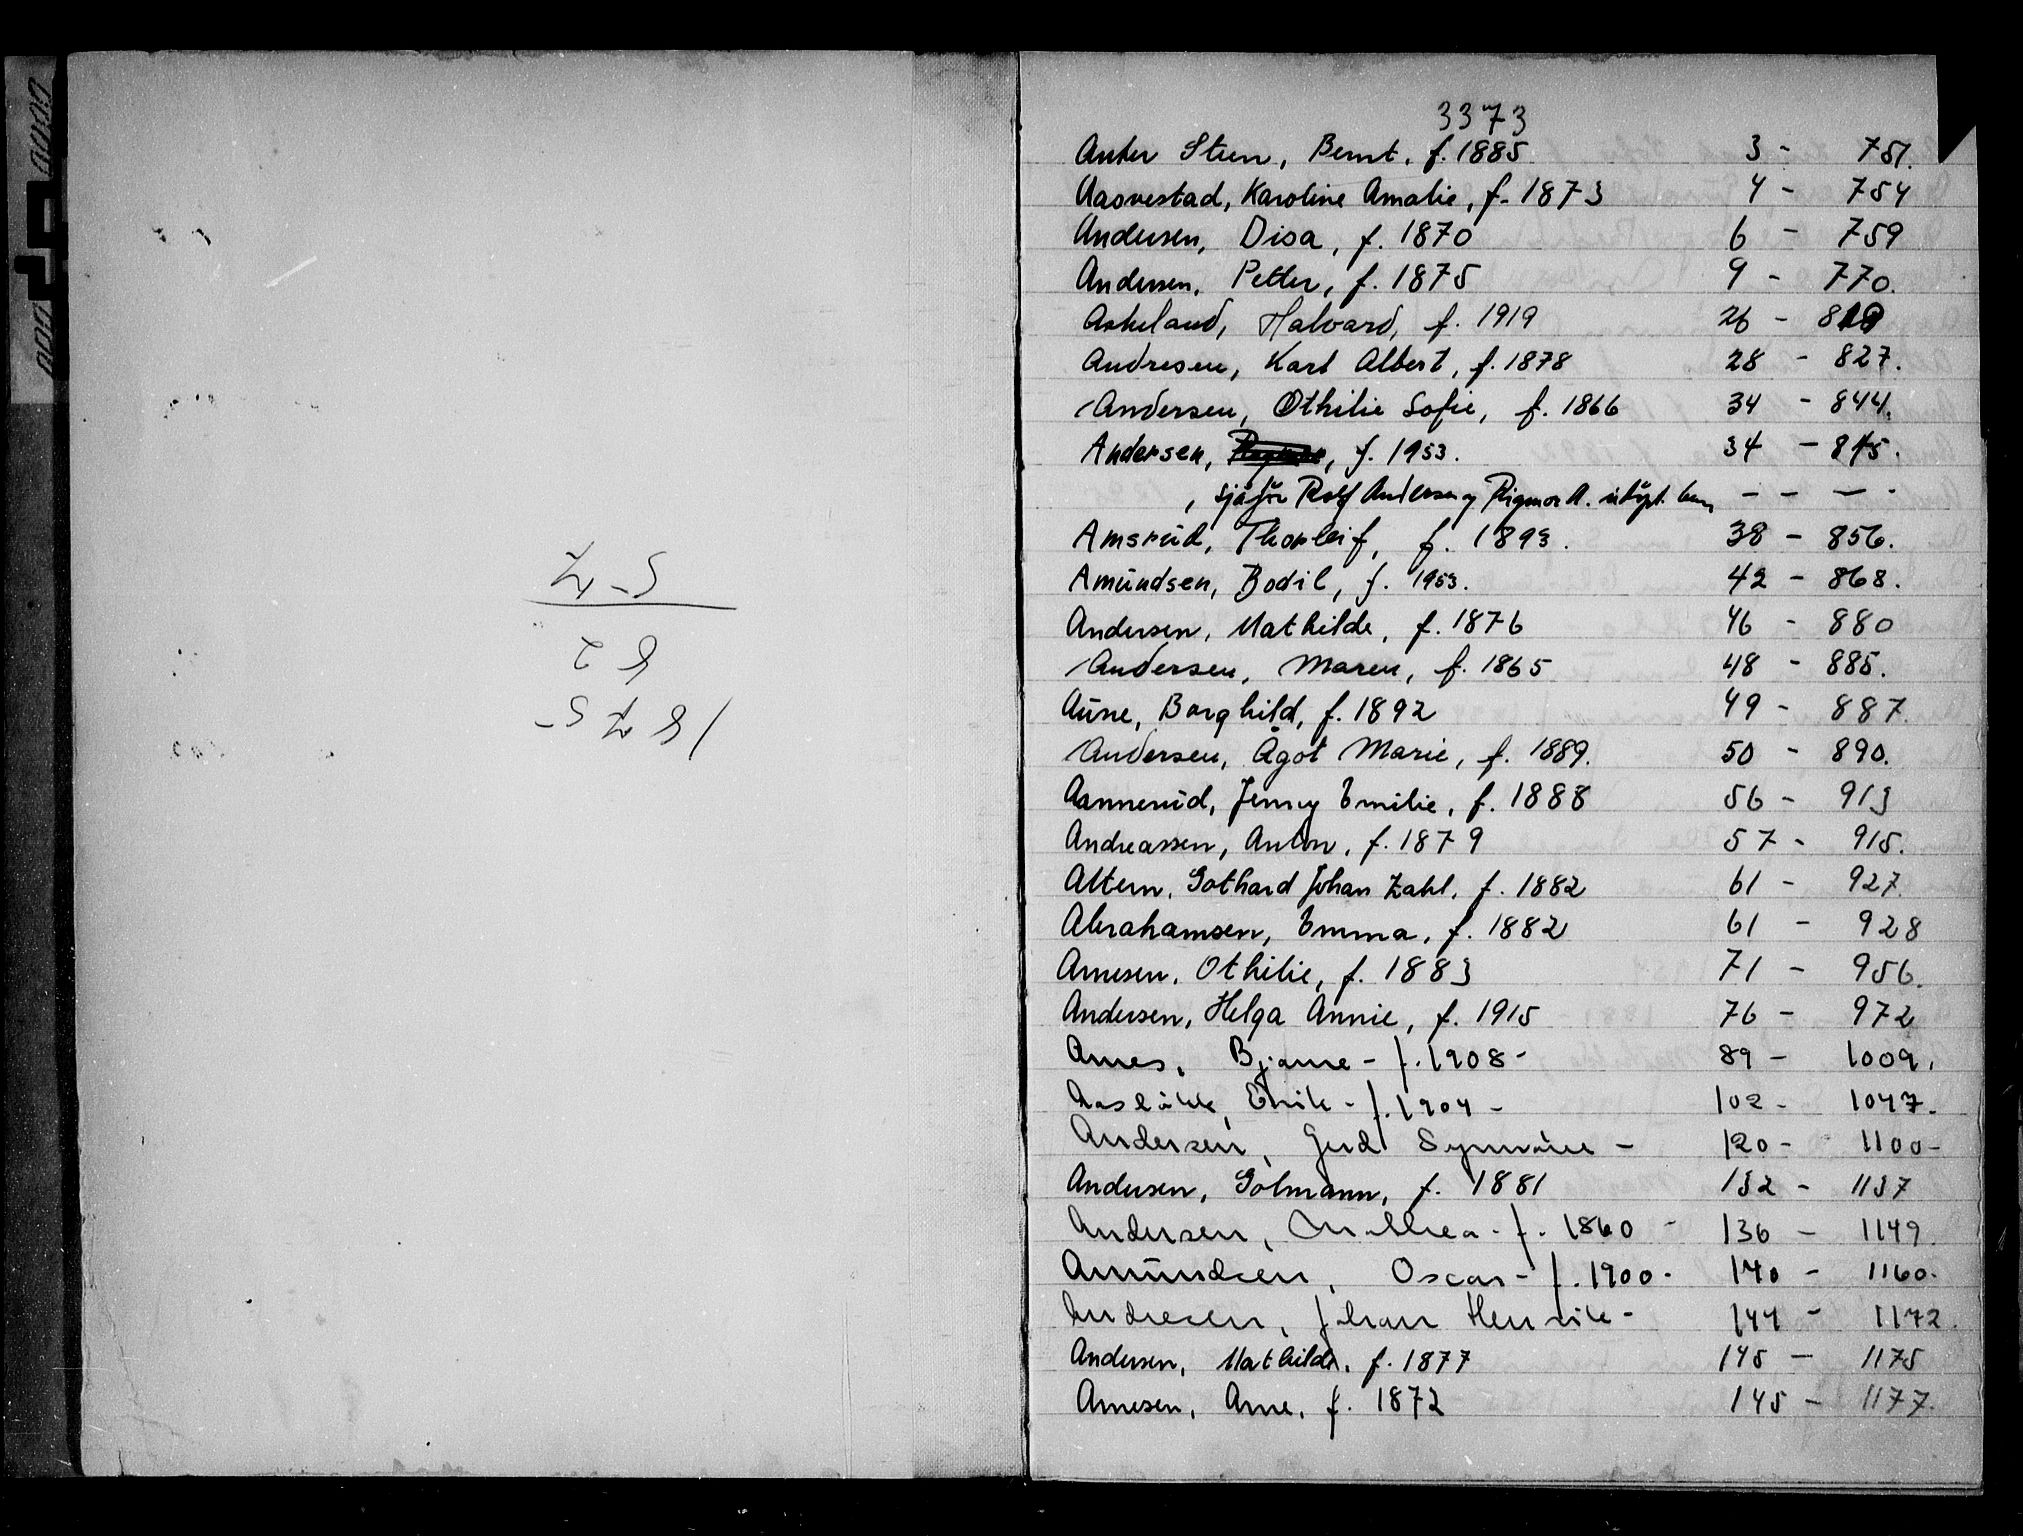 1875-
82
57
3373
Anker Steen, Bernt, f. 1885 3 - 751.
Aasvestad, Karoline Amalie, f. 1873 4 - 754
Andersen, Disa, f. 1870 6 - 759
Andersen, Petter, f. 1875 9 - 770.
Askeland, Halvard, f. 1919 26 - 819
Andresen, Karl Albert, f. 1878 28 - 827.
Andersen, Othilie Sofie, f. 1866 34 - 844.
Andersen, f. 1953. 34 - 845.
, sjåfør Rolf Andersen og Rigmor A. udøpt barn - - - -
Amsrud, Thorleif, f. 1893. 38 - 856.
Amundsen, Bodil, f. 1953. 42 - 868.
Andersen, Mathilde, f. 1876 46 - 880
Andersen, Maren, f. 1865 48 - 885.
Aune, Borghild, f. 1892 49 - 887.
Andersen, Ågot Marie, f. 1889. 50 - 890.
Aannerud, Jenny Emilie, f. 1888 56 - 913
Andreassen, Anton, f. 1879 57 - 915.
Altern, Gothard Johan Zahl, f. 1882 61 - 927.
Abrahamsen, Emma, f. 1882 61 - 928
Arnesen, Othilie, f. 1883 71 - 956.
Andersen, Helga Annie, f. 1915 76 - 972
Arnes, Bjarne - f. 1908 - 89 - 1009.
f. 1904 - 102 - 1047.
Andersen, Gerd Synnøve - 120 - 1100 -
Andersen, Golmann, f. 1881 132 - 1137
Andersen, f. 1860 - 136 - 1149.
Amundsen, Oscar - f. 1900 - 140 - 1160.
Andresen, Johan Henrik - 144 - 1172.
Andersen, Mathilde, f. 1877 145 - 1175
Arnesen, Arne, f. 1872 145 - 1177.